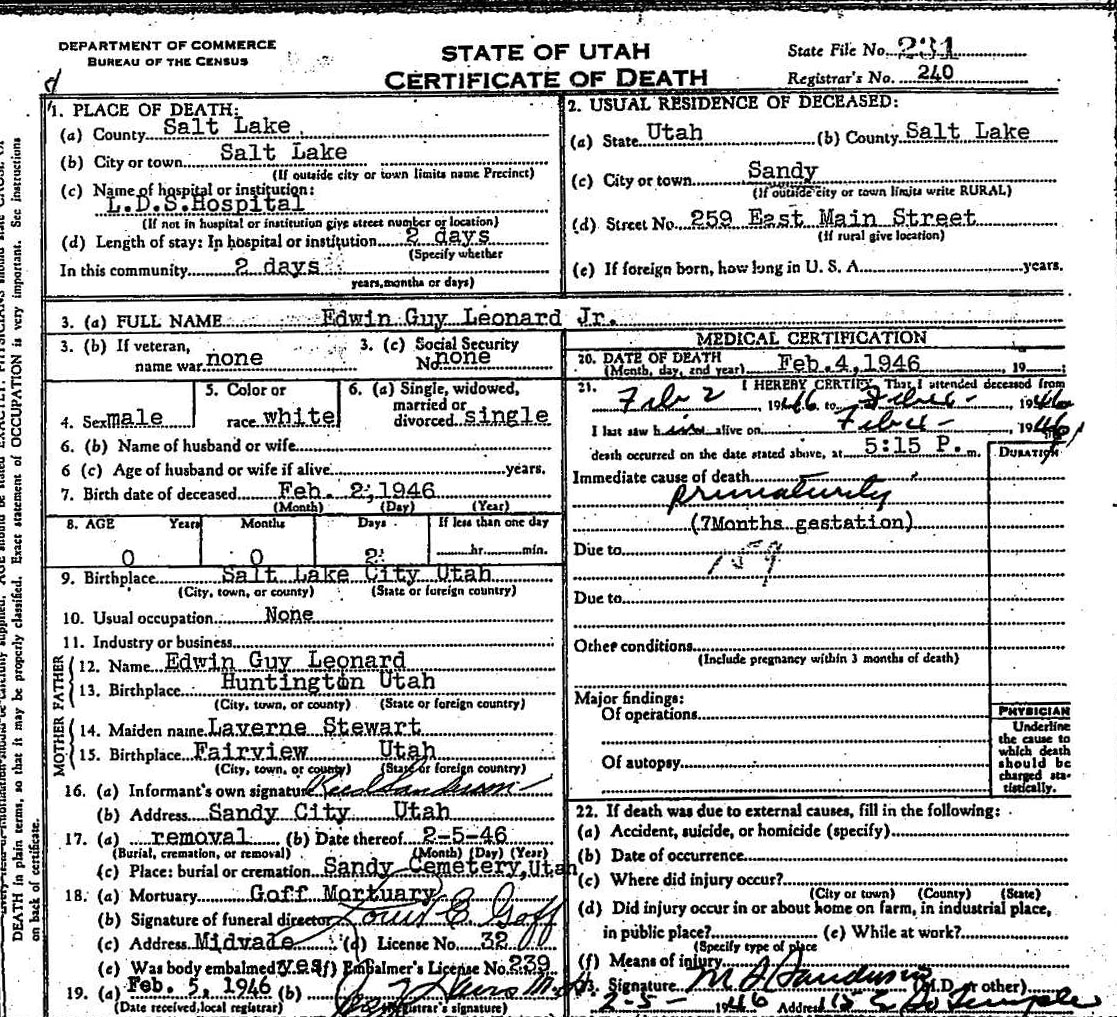 DEPARTMENT OF COMMERCE
BUREAU OF THE CENSUS
STATE OF UTAH
CERTIFICATE OF DEATH
State File No. 231
Registrar's No. 240
1. PLACE OF DEATH:
(a) County Salt Lake
(b) City or town Salt Lake
(If outside city or town limits name Precinct)
(c) Name of hospital or institution:
L.D.S.Hospital
(If not in hospital or institution give street number or location)
(d) Length of stay: In hospital or institution 2 days
(Specify whether
In this community 2 days
years, months or days)
2. USUAL RESIDENCE OF DECEASED:
(a) State Utah (b) County Salt Lake
(c) City or town Sandy
(If outside city or town limits write RURAL)
(d) Street No. 259 East Main Street
(If rural give location)
(e) If foreign born, how long in U. S. A. years.
3. (a) FULL NAME Edwin Guy Leonard Jr.
3. (b) If veteran, name war none
3. (c) Social Security No. none
4. Sex male
5. Color or race white
6. (a) Single, widowed, married or divorced single
6. (b) Name of husband or wife
6 (c) Age of husband or wife if alive years.
7. Birth date of deceased Feb. 2, 1946
(Month) (Day) (Year)
8. AGE Years Months Days If less than one day
0 0 2 hr. min.
9. Birthplace Salt Lake City Utah
(City, town, or county) (State or foreign country)
10. Usual occupation None
11. Industry or business
FATHER
12. Name Edwin Guy Leonard
13. Birthplace Huntington Utah
(City, town, or county) (State or foreign country)
MOTHER
14. Maiden name Laverne Stewart
15. Birthplace Fairview Utah
(City, town, or county) (State or foreign country)
16. (a) Informant's own signature
(b) Address Sandy City Utah
17. (a) removal (b) Date thereof 2-5-46
(Burial, cremation, or removal) (Month) (Day) (Year)
(c) Place: burial or cremation Sandy Cemetery, Utah
18. (a) Mortuary Goff Mortuary
(b) Signature of funeral director Louis E Goff
(c) Address Midvale (d) License No. 32
(e) Was body embalmed? yes (f) Embalmer's License No. 239
19. (a) Feb. 5, 1946 (b)
(Date received, local registrar) (Registrar's signature)
MEDICAL CERTIFICATION
20. DATE OF DEATH Feb. 4, 1946 19
(Month, day, and year)
21. I HEREBY CERTIFY, That I attended deceased from
Feb 2, 1946, to Feb 4, 1946
I last saw him alive on Feb 4, 1946
death occurred on the date stated above, at 5:15 P. m.
DURATION
Immediate cause of death
prematurity
(7Months gestation)
Due to
159
Due to
Other conditions
(Include pregnancy within 3 months of death)
Major findings:
Of operations
Of autopsy
PHYSICIAN
Underline
the cause to
which death
should be
charged sta-
tistically.
22. If death was due to external causes, fill in the following:
(a) Accident, suicide, or homicide (specify)
(b) Date of occurrence
(c) Where did injury occur?
(City or town) (County) (State)
(d) Did injury occur in or about home on farm, in industrial place,
in public place? (e) While at work?
(Specify type of place
(f) Means of injury
23. Signature (M.D. or other)
2-5-1946 Address 115 E So Temple
DEATH in plain terms, so that it may be properly classified. Exact statement of OCCUPATION is very important. See instructions
on back of certificate.